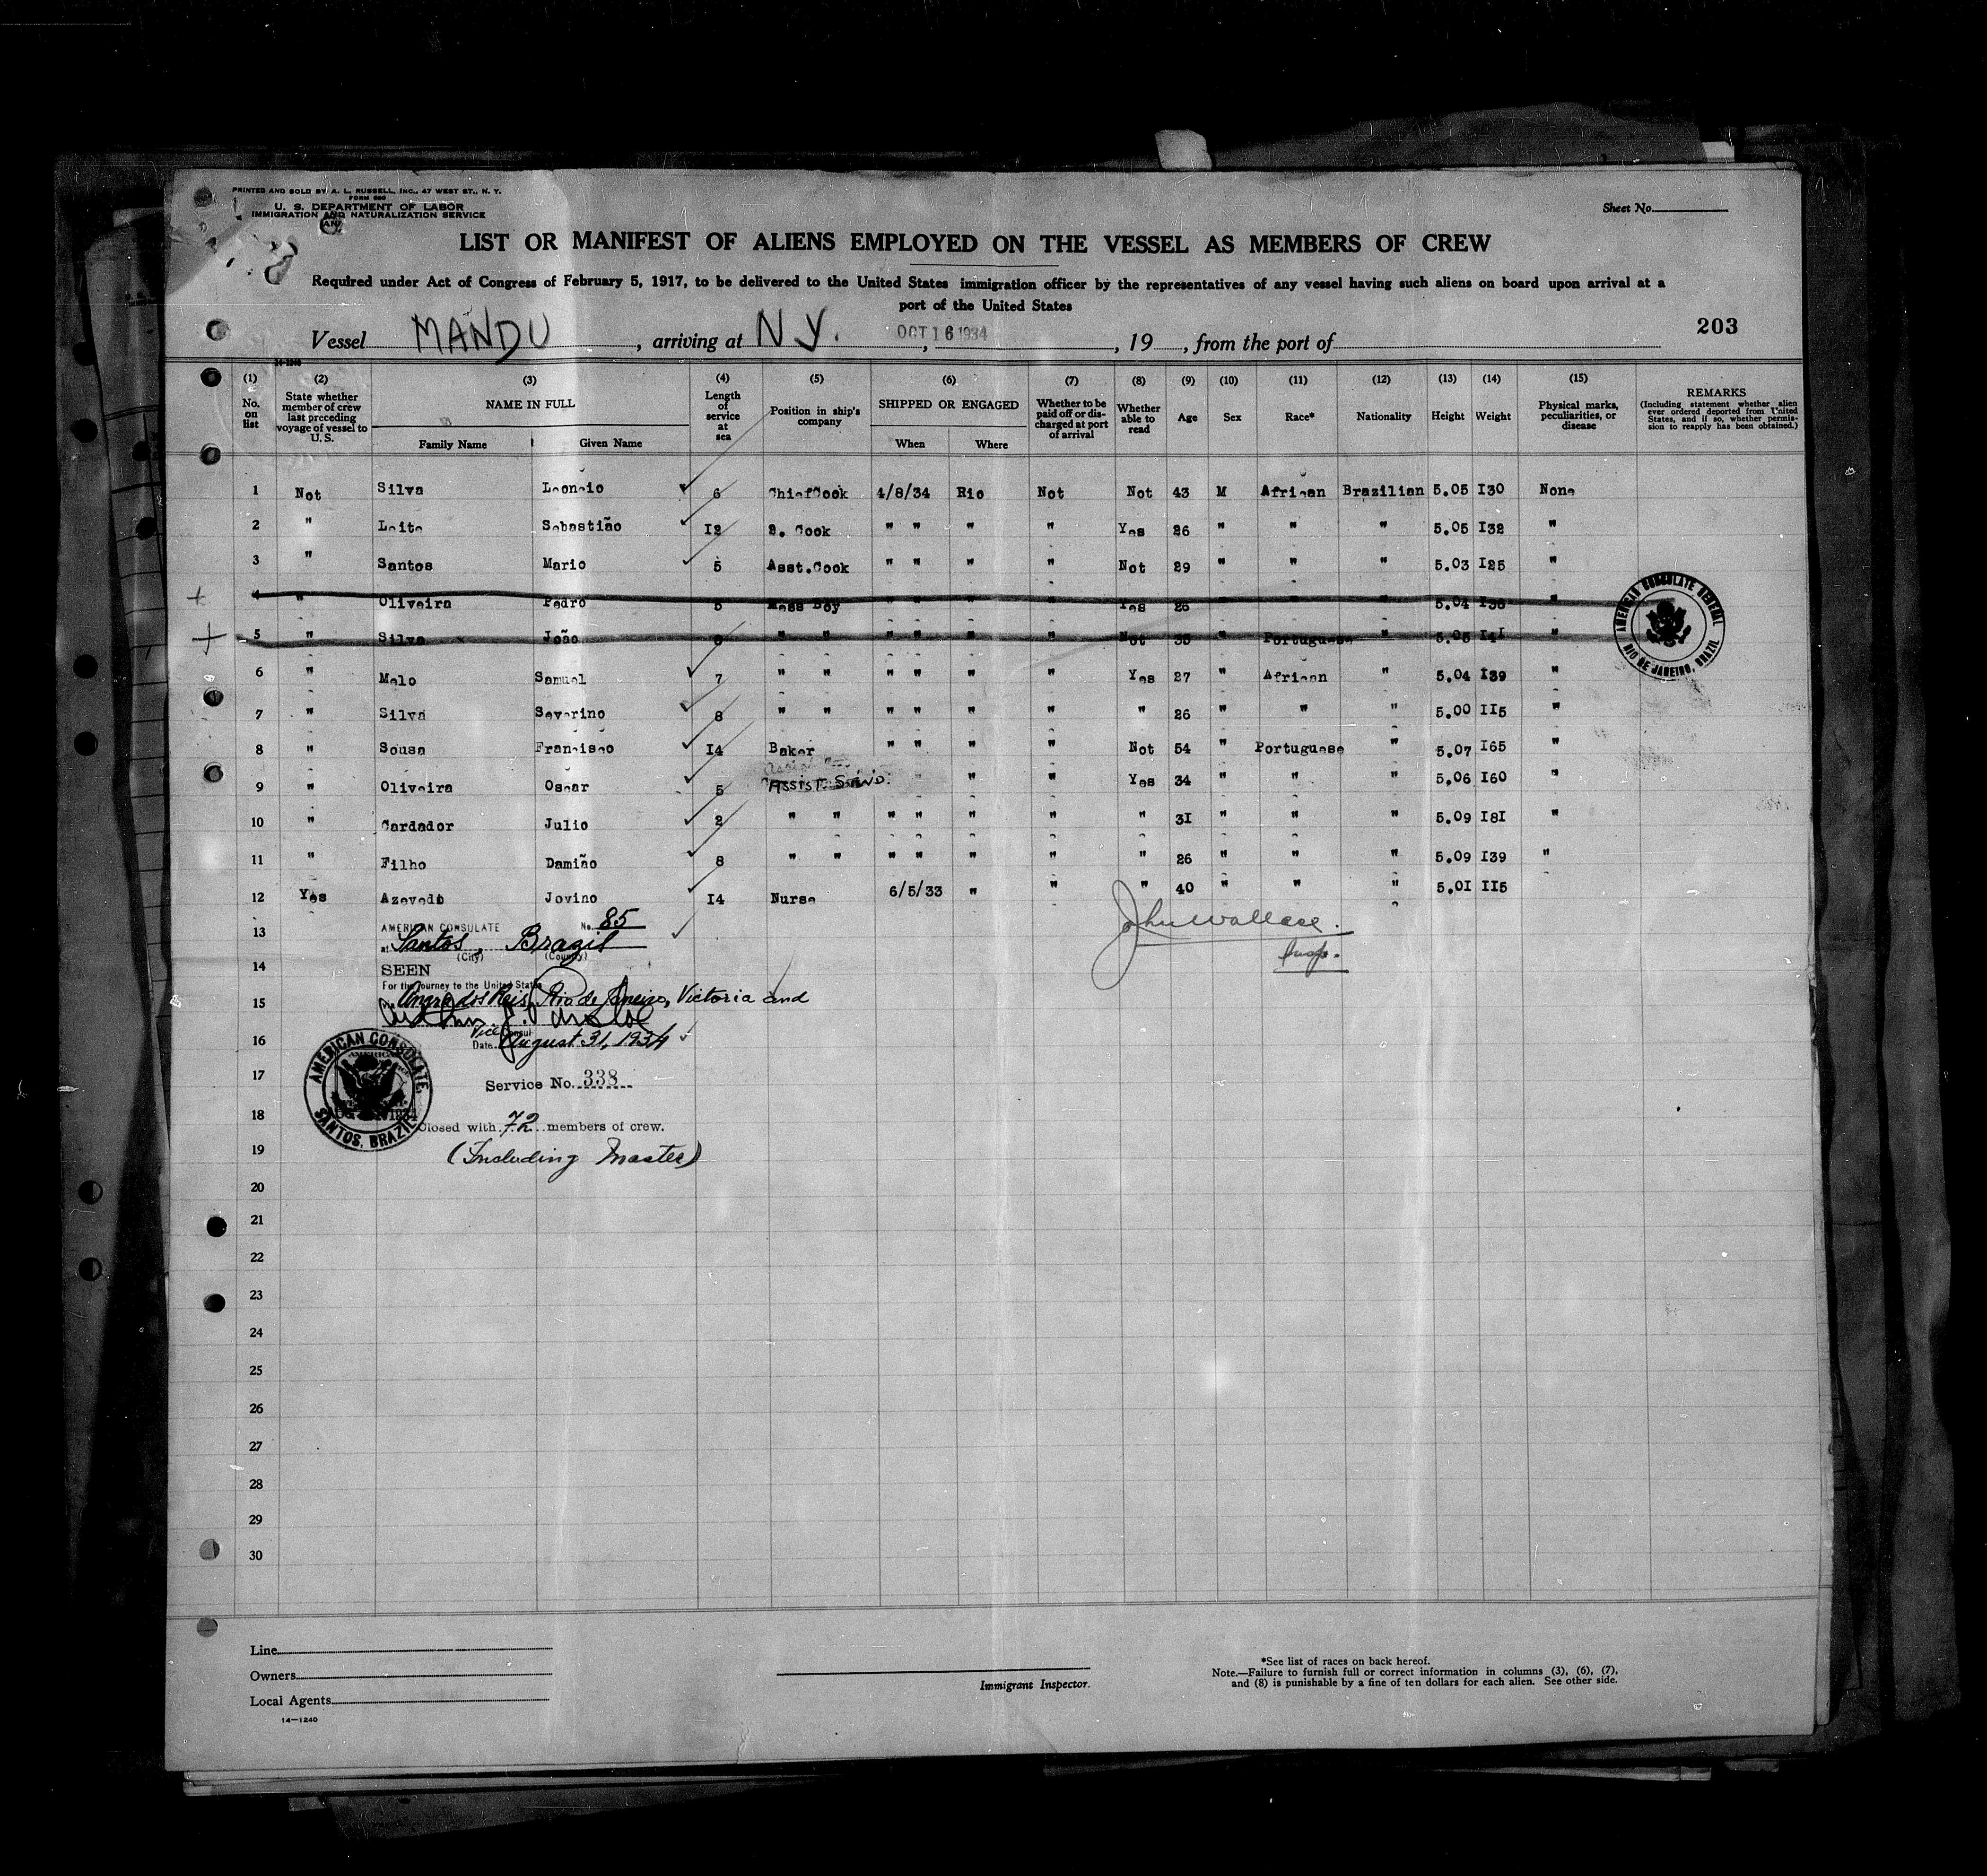 PRINTED AND SOLD BY A. L. RUSSELL, INC., 47 WEST ST., N. Y.
FORM 680
U. S. DEPARTMENT OF LABOR
IMMIGRATION AND NATURALIZATION SERVICE
Sheet No.
LIST OR MANIFEST OF ALIENS EMPLOYED ON THE VESSEL AS MEMBERS OF CREW
Required under Act of Congress of February 5, 1917, to be delivered to the United States immigration officer by the representatives of any vessel having such aliens on board upon arrival at a
port of the United States
203
Vessel MANDU, arriving at N Y. OCT 16 1934, 19 , from the port of
14-1240
(1) No. on list
(2) State whether member of crew last preceding voyage of vessel to U. S.
(3) NAME IN FULL Family Name Given Name
(4) Length of service at sea
(5) Position in ship's company
(6) SHIPPED OR ENGAGED When Where
(7) Whether to be paid off or discharged at port of arrival
(8) Whether able to read
(9) Age
(10) Sex
(11) Race*
(12) Nationality
(13) Height
(14) Weight
(15) Physical marks, peculiarities, or disease
REMARKS (Including statement whether alien ever ordered deported from United States, and if so, whether permission to reapply has been obtained.)
1 Not Silva Leoncio 6 ChiefCook 4/8/34 Rio Not Not 43 M African Brazilian 5.05 I30 None
2 " Leite Sebastião I2 2. Cook " " " " Yes 26 " " " 5.05 I32 "
3 " Santos Mario 5 Asst.Cook " " " " Not 29 " " " 5.03 I25 "
4 " Oliveira Pedro 5 Mess Boy " " " " Yes 25 " " " 5.04 "
5 " Silva João " " " " " " Not 35 " Portuguese " 5.05 I4I "
6 " Melo Samuel 7 " " " " " " Yes 27 " African " 5.04 I39 "
7 " Silva Severino 8 " " " " " " " 26 " " " 5.00 II5 "
8 " Sousa Francisco I4 Baker " " " " Not 54 " Portuguese " 5.07 I65 "
9 " Oliveira Oscar 5 ASSIST. " " " Yes 34 " " " 5.06 I60 "
10 " Cardador Julio 2 " " " " " " " 3I " " " 5.09 I8I "
11 " Filho Damião 8 " " " " " " " 26 " " " 5.09 I39 "
12 Yes Azevedo Jovino I4 Nurse 6/5/33 " " " 40 " " " 5.0I II5
AMERICAN CONSULATE GENERAL
RIO DE JANEIRO, BRAZIL
John Wallace.
Insp.
13
AMERICAN CONSULATE No. 85
at Santos, Brazil
(City) (Country)
14
SEEN
For the journey to the United States
15
via Angra dos Reis, Rio de Janeiro, Victoria and
Vice Consul
16
Date. August 31, 1934
AMERICAN CONSULATE,
SANTOS, BRAZIL
17
Service No. 338
18
Closed with 72 members of crew.
19
(Including Master)
20
21
22
23
24
25
26
27
28
29
30
Line
Owners
Local Agents
14—1240
Immigrant Inspector.
*See list of races on back hereof.
Note.—Failure to furnish full or correct information in columns (3), (6), (7),
and (8) is punishable by a fine of ten dollars for each alien. See other side.